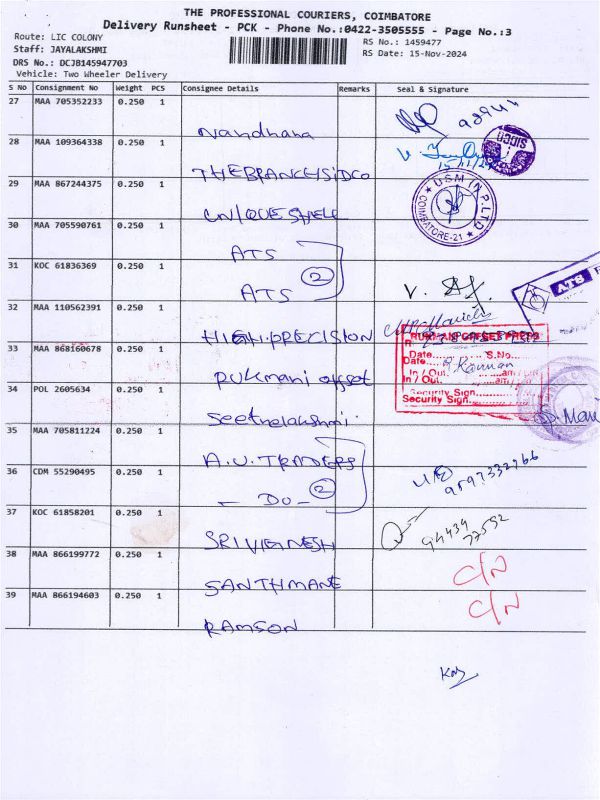 THE PROFESSIONAL COURIERS, COIMBATORE
Delivery Runsheet - PCK - Phone No.:0422-3505555 - Page No.:3
Route: LIC COLONY
Staff: JAYALAKSHMI
DRS No.: DCJ8145947703
Vehicle: Two Wheeler Delivery
RS No.: 1459477
RS Date: 15-Nov-2024
S No Consignment No Weight PCS Consignee Details Remarks Seal & Signature
27 MAA 705352233 0.250 1
Nandhana
28 MAA 109364338 0.250 1
SIDCO
THEBRANCHSIDCO
29 MAA 867244375 0.250 1
USM IN P.LTD
COIMBATORE-21
UNIQUE SHELL
30 MAA 705590761 0.250 1
ATS
31 KOC 61836369 0.250 1
ATS
2
ATS
32 MAA 110562391 0.250 1
HIGH PRECISION
33 MAA 868160678 0.250 1
RUKMANI OFFSET PRESS
Date S.No.
Date
In / Out. am
In / Out. am
Security Sign
Security Sign
Rukmani offset
34 POL 2605634 0.250 1
Seethelakshmi
35 MAA 705811224 0.250 1
A.U. TRADERS
36 CDM 55290495 0.250 1
- DO -
2
37 KOC 61858201 0.250 1
94439
SRI VIGNESH
38 MAA 866199772 0.250 1
C/N
SANTHMANE
39 MAA 866194603 0.250 1
C/N
RAMSON